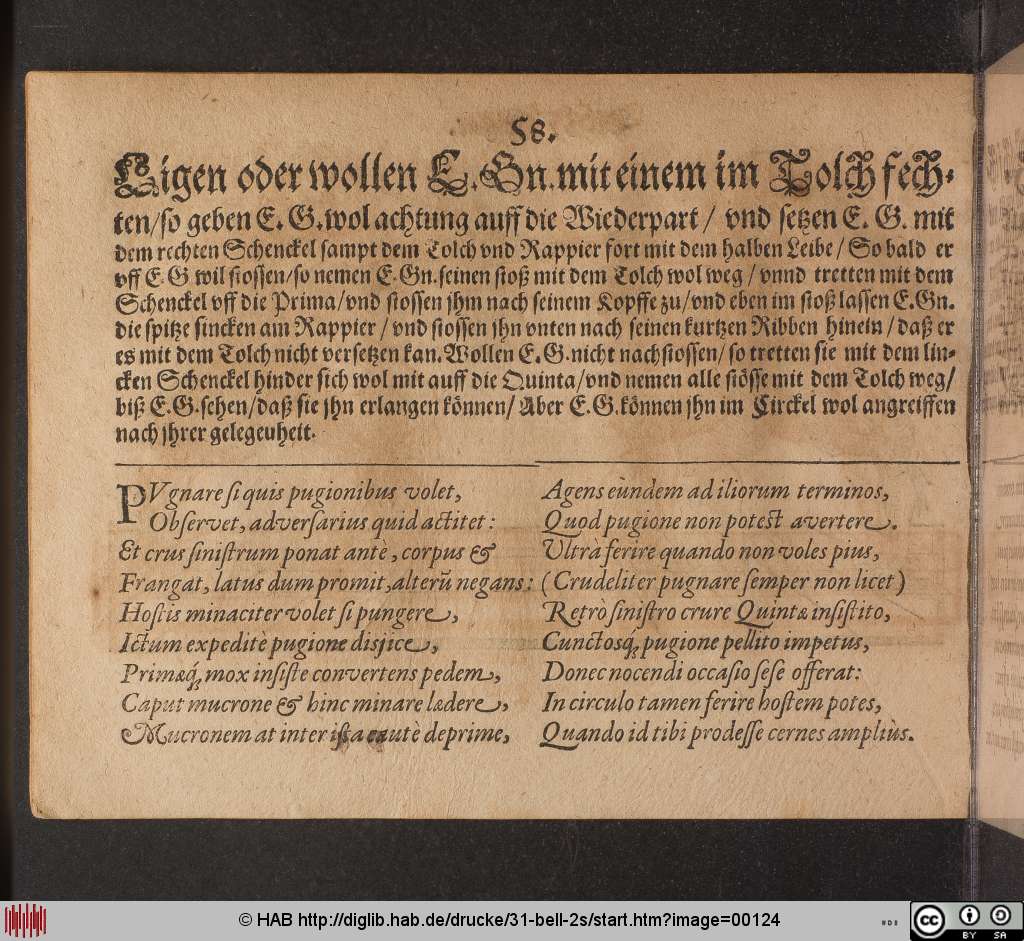 58.
Ligen oder wollen E. Gn. mit einem im Tolch fech-
ten/so geben E. G. wol achtung auff die Wiederpart / vnd setzen E. G. mit
dem rechten Schenckel sampt dem Tolch vnd Rappier fort mit dem halben Leibe / So bald er
vff E. G wil stossen/so nemen E. Gn. seinen stoß mit dem Tolch wol weg / vnnd tretten mit dem
Schenckel vff die Prima/vnd stossen jhm nach seinem Kopffe zu/vnd eben im stoß lassen E. Gn.
die spitze sincken am Rappier / vnd stossen jhn vnten nach seinen kurtzen Ribben hinein / daß er
es mit dem Tolch nicht versetzen kan. Wollen E. G. nicht nachstossen/ so tretten sie mit dem lin-
cken Schenckel hinder sich wol mit auff die Quinta/vnd nemen alle stösse mit dem Tolch weg/
biß E. G. sehen/daß sie jhn erlangen können/ Aber E. G. können jhn im Circkel wol angreiffen
nach jhrer gelegeuheit.
PVgnare si quis pugionibus volet,
Observet, adversarius quid actitet:
Et crus sinistrum ponat antè, corpus &
Frangat, latus dum promit, alterũ negans:
Hostis minaciter volet si pungere,
Ictum expeditè pugione disjice,
Primæq́; mox insiste convertens pedem,
Caput mucrone & hinc minare lædere,
Mucronem at inter ista cautè deprime,
Agens eùndem ad iliorum terminos,
Quod pugione non potest avertere.
Ultrà ferire quando non voles pius,
(Crudeliter pugnare semper non licet)
Retrò sinistro crure Quintæ insistito,
Cunctosq́; pugione pellito impetus,
Donec nocendi occasio sese offerat:
In circulo tamen ferire hostem potes,
Quando id tibi prodesse cernes ampliùs.
© HAB http://diglib.hab.de/drucke/31-bell-2s/start.htm?image=00124
cc BY SA